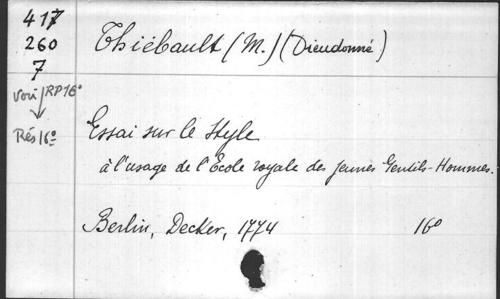 417
260
7
voir RP 16°
Rés 16°
Thiébault (M.) (Dieudonné)
Essai sur le Style
à l'usage de l'École royale des jeunes Gentils-Hommes.
Berlin, Decker, 1774 16°